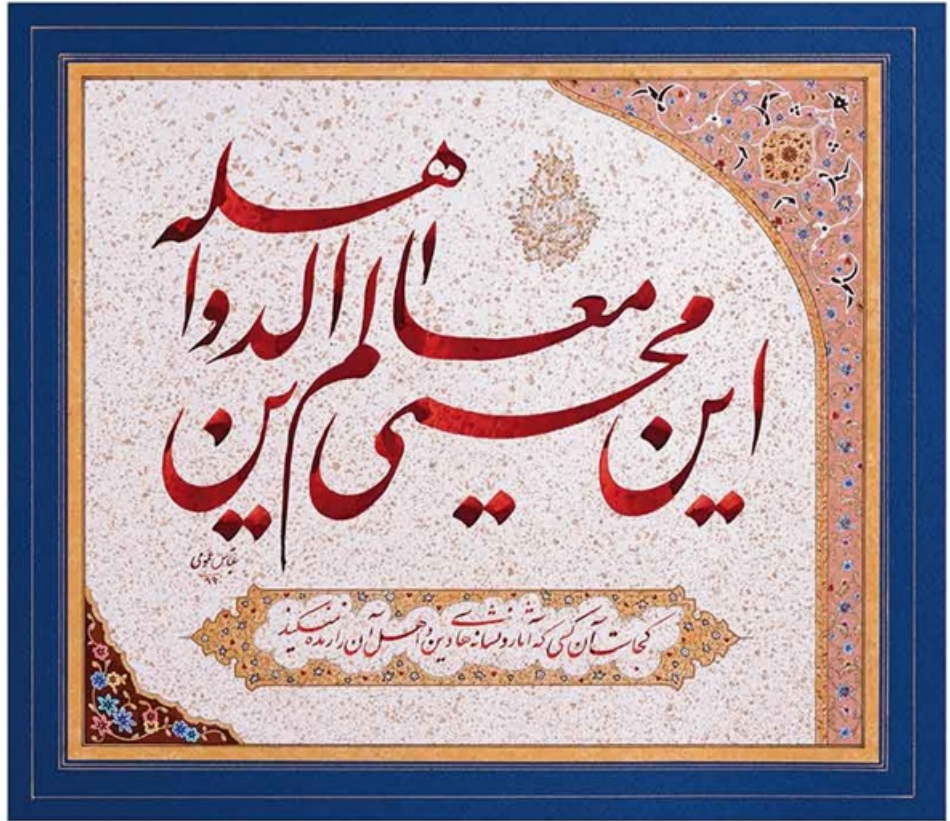 این محیی معالم الدین و اهله
کجاست آن کسی که آثار و نشانه‌های دین و اهل آن را زنده می‌کند
عباس